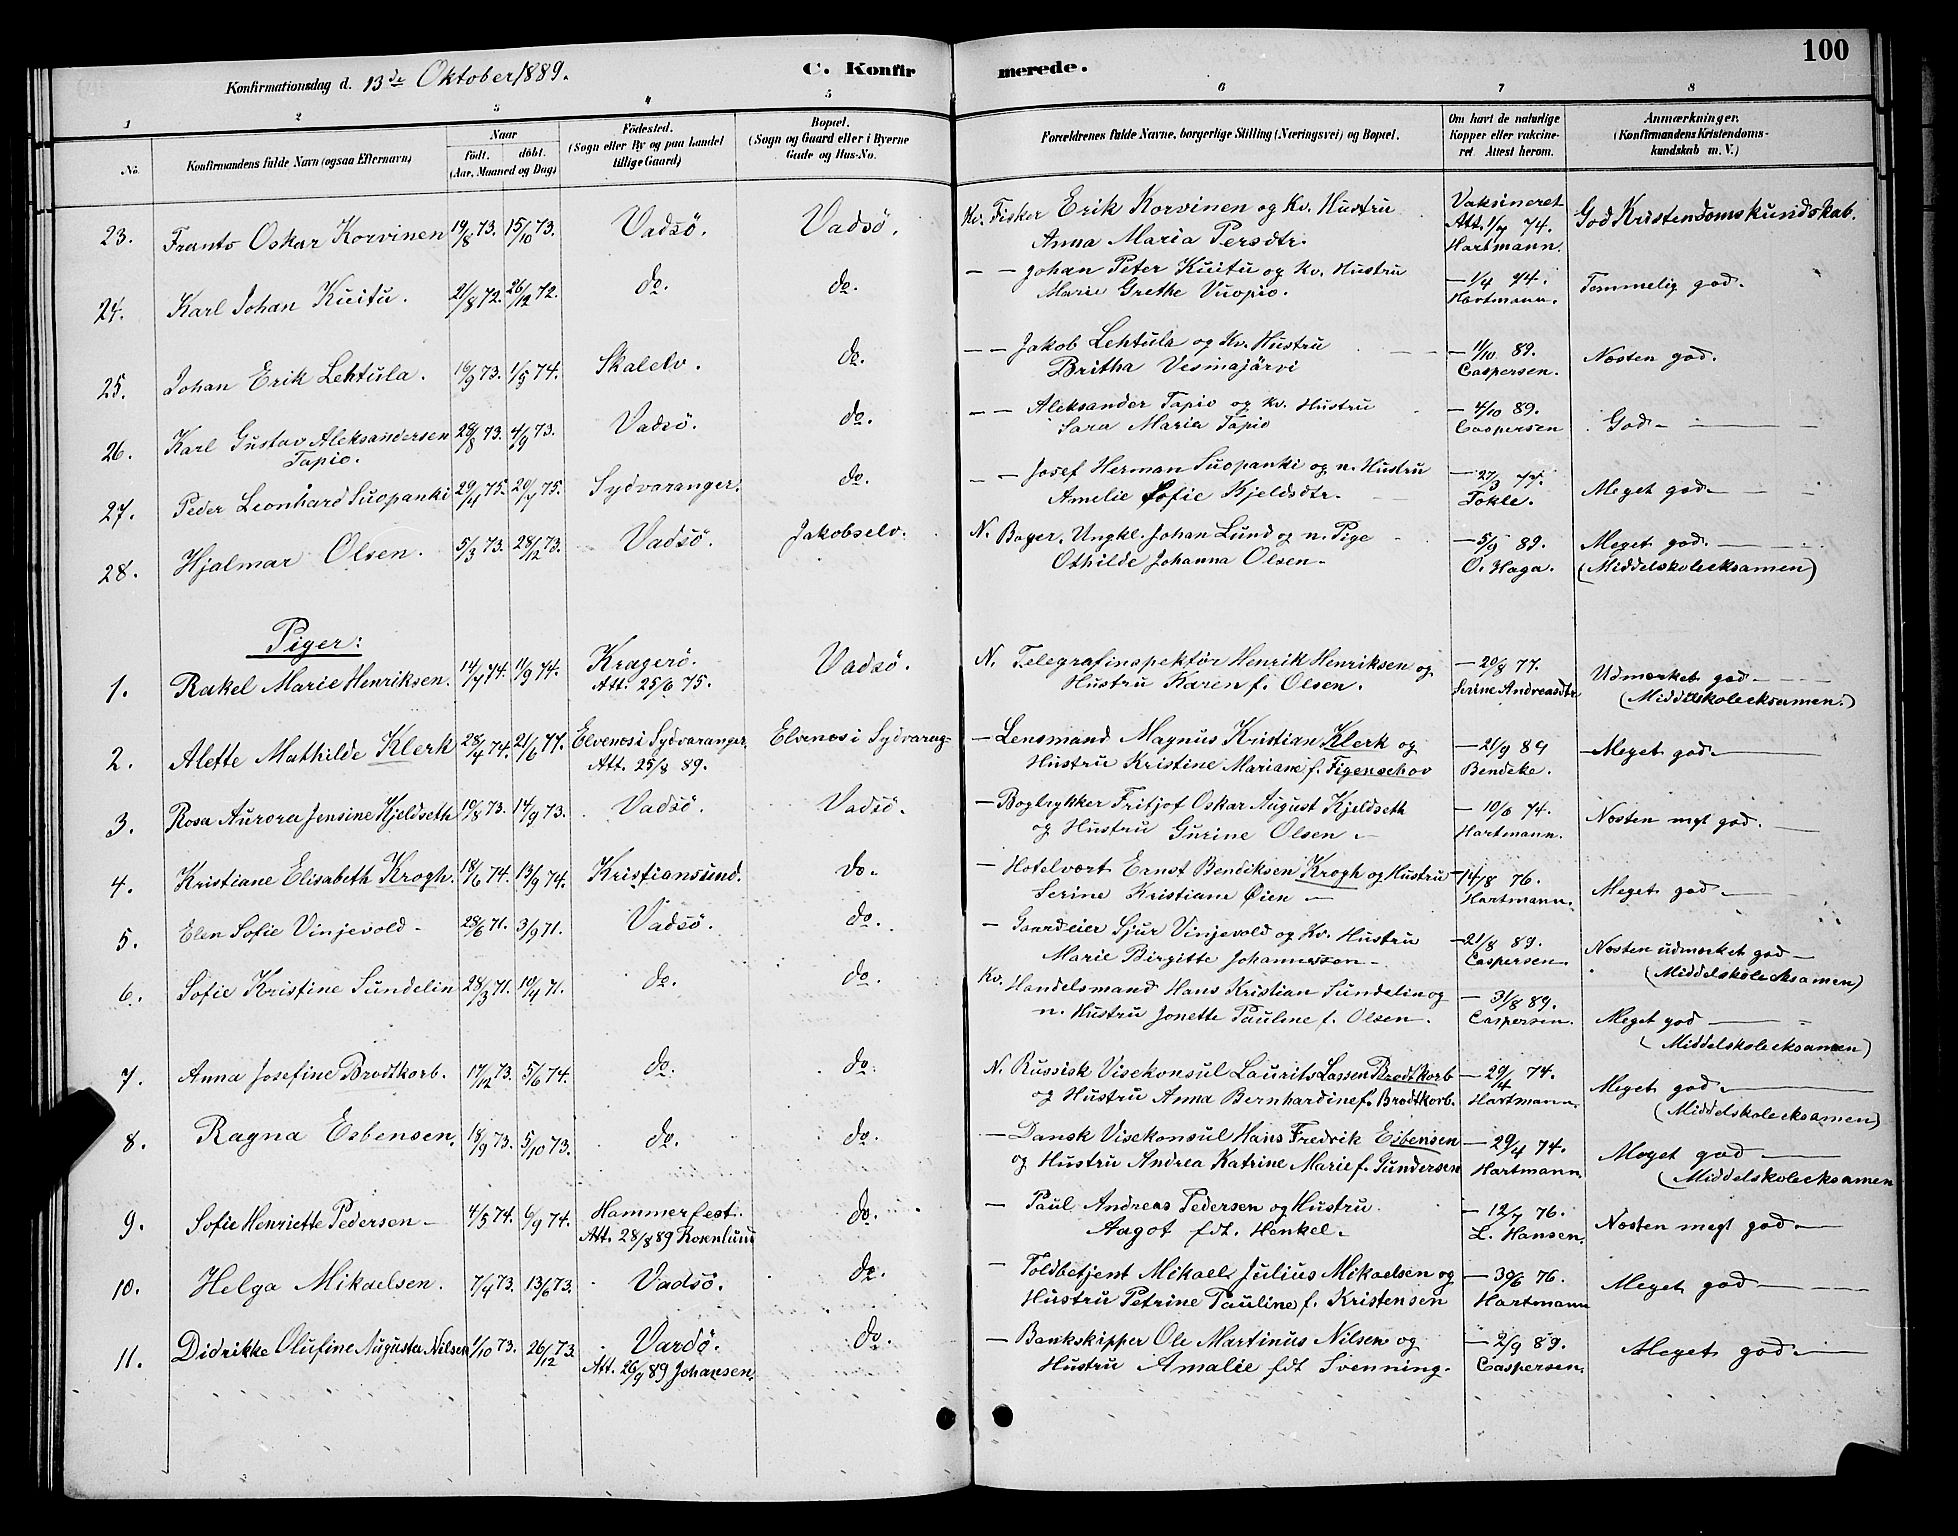 100
Konfirmationsdag d. 13de Oktober 1889.
C. Konfirmerede.
1 2 3 4 5 6 7 8
No.
Konfirmandens fulde Navn (ogsaa Efternavn)
Naar
födt. döbt.
(Aar, Maaned og Dag)
Födested.
(Sogn eller By og paa Landet
tillige Gaard)
Bopæl.
(Sogn og Gaard eller i Byerne
Gade og Hus-No.
Forældrenes fulde Navne, borgerlige Stilling (Næringsvei) og Bopæl.
Om havt de naturlige
Kopper eller vakcine-
ret Attest herom.
Anmærkninger.
(Konfirmandens Kristendoms-
kundskab m. V.)
23. Frants Oskar Korvinen 19/8 73. 15/10 73. Vadsö. Vadsö. Kv. Fisker Erik Korvinen og Kv. Hustru
Anna Maria Persdtr.
Vaksineret
Att. 1/7 74.
Hartmann.
God Kristendomskundskab.
24. Karl Johan Kuitu. 21/8 72. 26/12 72. do. do. — — Johan Peter Kuitu og Kv. Hustru
Marie Grethe Vuopio.
— 1/4 74.
Hartmann.
Temmelig god.
25. Johan Erik Lehtula. 16/9 73. 1/5 74. Skalelv. do. — — Jakob Lehtula og Kv. Hustru
Britha Vesmajärvi
— 11/10 89.
Caspersen.
Næsten god.
26. Karl Gustav Aleksandersen
Tapio.
28/8 73. 4/9 73. Vadsö. do. — — Aleksander Tapio og Kv. Hustru
Sara Maria Tapio
— 4/10 89.
Caspersen
God —
27. Peder Leonhard Suopanki 29/4 75. 20/7 75. Sydvaranger. do. — — Josef Herman Suopanki og n. Hustru
Amelie Sofie Kjeldsdtr.
— 27/3 77.
Tokle.
Meget god —
28. Hjalmar Olsen. 5/3 73. 28/12 73. Vadsö. Jakobselv. N. Bager, Ungkl. Johan Lund og n. Pige
Othilde Johanna Olsen.
— 5/9 89.
O. Haga.
Meget god. —
(Middelskoleeksamen)
Piger:
1. Rakel Marie Henriksen. 14/7 74. 11/9 74. Kragerö.
Att. 25/6 75.
Vadsö. N. Telegrafinspektör Henrik Henriksen og
Hustru Karen f. Olsen.
— 20/8 77.
Serine Andreasdtr
Udmærket god —
(Middelskoleeksamen.)
2. Alette Mathilde Klerk 28/4 74. 21/6 74. Elvenes i Sydvaranger.
Att. 25/8 89.
Elvenes i Sydvarag- — Lensmand Magnus Kristian Klerk og
Hustru Kristine Mariane f. Figenschov
— 21/9 89
Bendeke.
Meget god —
3. Rosa Aurora Jensine Kjeldseth 10/8 73. 14/9 73. Vadsö. Vadsö. — Bogtrykker Fritjof Oskar August Kjeldseth
og Hustru Gurine Olsen —
— 10/6 74.
Hartmann.
Næsten mgt god. —
4. Kristiane Elisabeth Krogh. 18/6 74. 13/9 74. Kristiansund. do. — Hotelvært Ernst Bendiksen Krogh og Hustru
Serine Kristiane Øien —
— 14/8 76.
Hartmann.
Meget god —
5. Elen Sofie Vinjevold — 28/6 71. 3/9 71. Vadsö. do. — Gaardeier Sjur Vinjevold og Kv. Hustru
Marie Birgitte Johannesson —
— 21/8 89.
Caspersen —
Næsten udmærket god —
(Middelskoleeksamen)
6. Sofie Kristine Sundelin 28/3 71. 10/4 71. do. do. Kv. Handelsmand Hans Kristian Sundelin og
n. Hustru Jonette Pauline f. Olsen.
— 31/8 89.
Caspersen.
Meget god —
(Middelskoleeksamen)
7. Anna Josefine Brodtkorb. 17/12 73. 5/6 74. do. do. N. Russisk Visekonsul Laurits Lassen Brodtkorb
og Hustru Anna Bernhardine f. Brodtkorb.
— 29/4 74.
Hartmann.
Meget god —
(Middelskoleeksamen)
8. Ragna Esbensen. 18/9 73. 5/10 73. do. do. — Dansk Visekonsul Hans Fredrik Esbensen
og Hustru Andrea Katrine Marie f. Gundersen
— 29/4 74.
Hartmann.
Meget god —
(Middelskoleeksamen
9. Sofie Henriette Pedersen — 4/5 74. 6/9 74. Hammerfest.
Att. 28/8 89 Rosenlund
do. — Paul Andreas Pedersen og Hustru
Aagot fdt. Henkel.
— 12/7 76.
L. Hansen.
Næsten megt god —
10. Helga Mikaelsen. 7/4 73. 13/6 73. Vadsö. do. — Toldbetjent Mikael Julius Mikaelsen og
Hustru Petrine Pauline f. Kristensen
— 30/6 76.
Hartmann
Meget god —
11. Didrikke Olufine Augusta Nilsen 1/10 73. 26/12 73. Vardö.
Att. 26/9 89 Johansen.
do. — Bankskipper Ole Martinus Nilsen og
Hustru Amalie fdt Svenning.
— 2/9 89.
Caspersen.
Meget god —